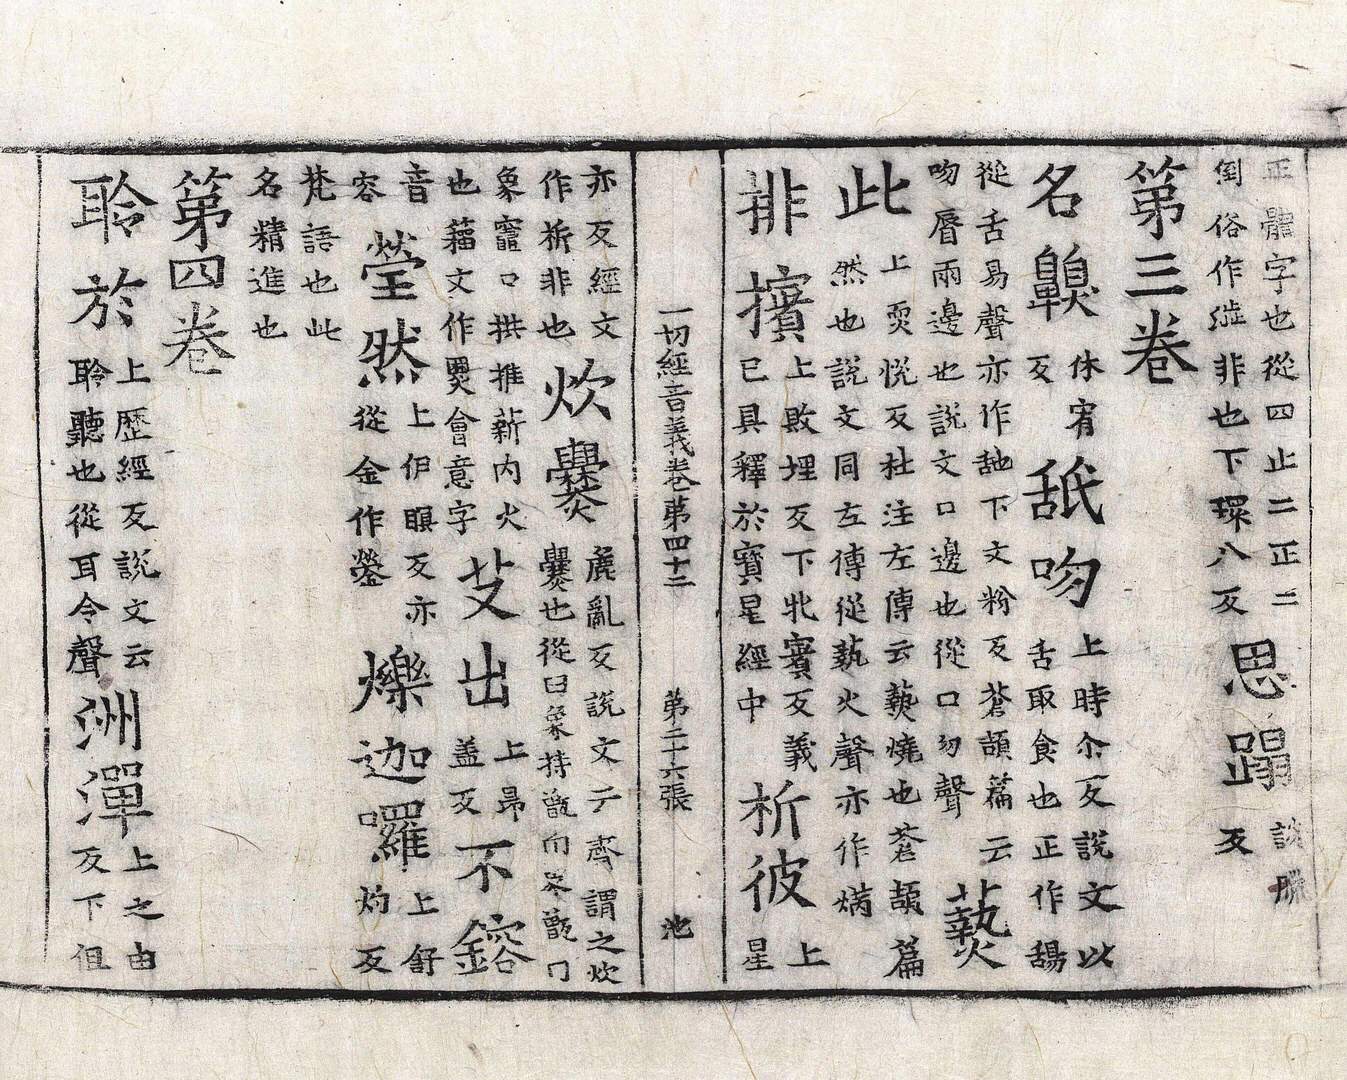 正體字也從四止二正二
倒俗作澁非也下環八反
思蹋談臘
反
第三卷
名齅休宥
反
舐吻上時尒反說文以
舌取食也正作舓
從舌易聲亦作䑛下文粉反蒼頡篇云
吻脣兩邊也說文口邊也從口勿聲
爇
此上爇悅反杜注左傳云爇燒也蒼頡篇
然也說文同左傳從蓺火聲亦作焫
排擯上敗埋反下牝賓反義
已具釋於寶星經中
析彼上
星
一切經音義卷第四十二 第二十六張 池
亦反經文
作㭊非也
炊爨麁亂反說文云齊謂之炊
爨也從臼象持甑冂為甑口
象竈口拱推薪內火
也籀文作㸑會意字
艾出上昂
蓋反
不鎔
音
容
瑩然上伊瞑反亦
從金作鎣
爍迦囉上舒
灼反
梵語也此
名精進也
第四卷
聆於上歷經反說文云
聆聽也從耳令聲
洲潬上之由
反下但